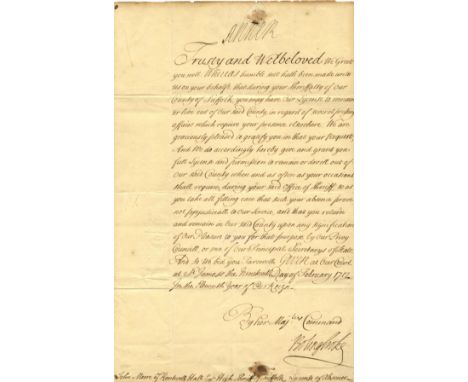 Anne R
Trusty and Welbeloved We Greet
you well Whereas humble suit hath been made unto
us on your behalf, that during your Shrifalty of our
County of Suffolk, you may have Our Lycense to remain
or live out of Our said County, in regard of several pressing
affairs which require your presence elsewhere. We are
graciously pleased to gratify you in that your Request;
And We do accordingly hereby give and grant you
full Lycense and permission to remain or dwell out of
Our said County when and as often as your occasions
shall require, during your said Office of Sheriff, so as
you take all fitting care that such your absence prove
not prejudiciall to Our Service, and that you return
and remain in Our said County upon any signification
of Our Pleasure to you for that purpose, by Our Privy
Councill, or one of Our Principal Secretarys of State.
And so We bid you Farewell. Given at Our Court
at St. James's the Day of February 171
In the Eleventh Year of Our Reign.
By her Majtys Command
Bolingbroke
John More of Kentwell Hall Esq High Sheriff of Suffolk Lycense of Absence